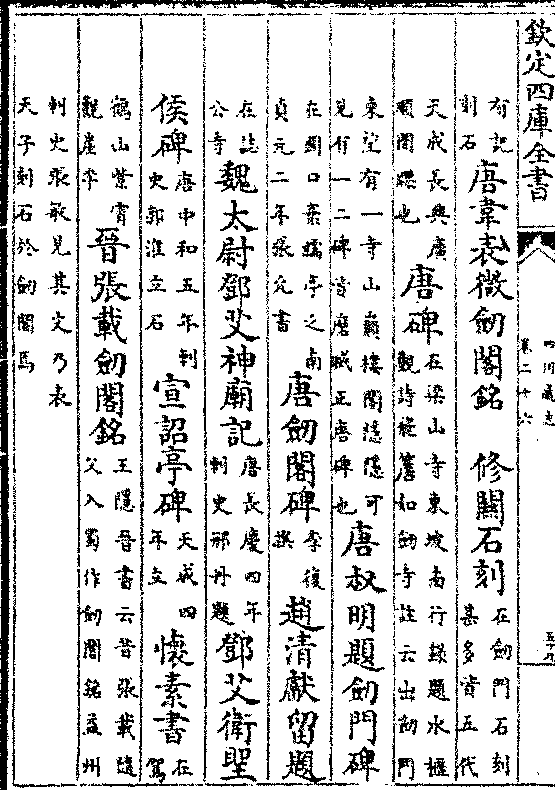 欽定四庫全書
四川通志
卷二十六
五十九
有記刻石 唐韋表微劍閣銘 修關石刻 在劍門石刻甚多皆五代
天成長興廣順間牒也 唐碑 在梁山寺東坡南行錄題水櫃觀詩舊如劍寺註云出劍門
東望有一寺山巔樓閣隱隱可見有一二碑皆磨滅正唐碑也 唐叔明題劍門碑
在閣口亭之南貞元二年張允書 唐劍閣碑 李復撰 趙清獻留題
在誌公寺 魏太尉鄧艾神廟記 唐長慶四年刺史邢丹題 鄧艾衛聖
侯碑 唐中和五年刺史郭淮立石 宣詔亭碑 天成四年立 懷素書 在駕
鶴山紫霄觀崖李 晉張載劍閣銘 王隱晉書云昔張載隨父入蜀作劍閣銘益州
刺史張敏見其文乃表天子刻石於劍閣焉